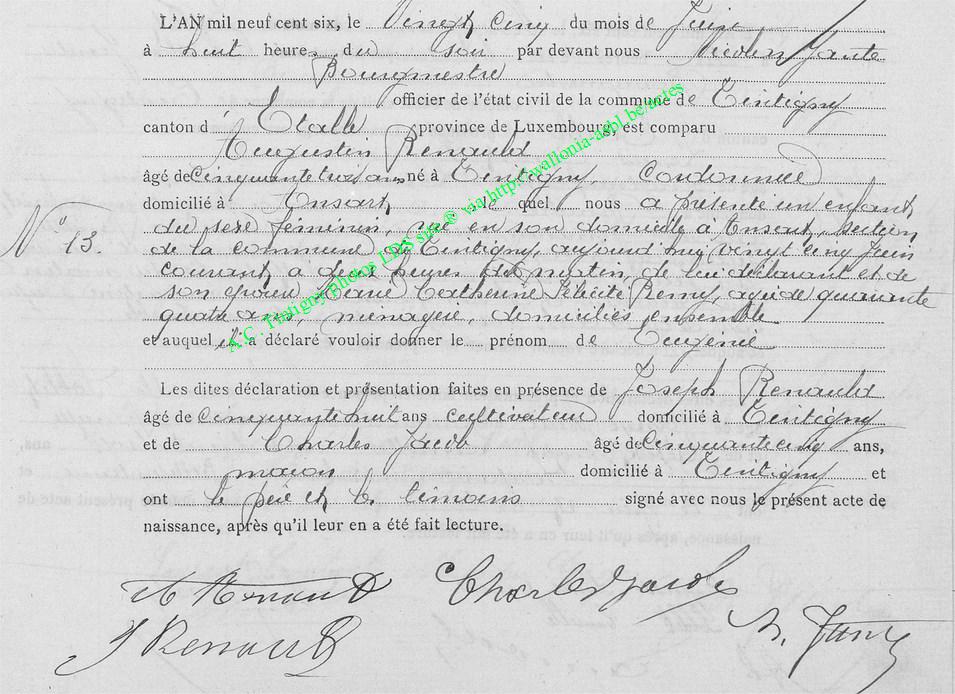 L'AN mil neuf cent six, le Vingt Cinq du mois de Juin
à huit heures du soir par devant nous Nicolas
Bourgmestre
officier de l'état civil de la commune de Tintigny
canton d' Etalle province de Luxembourg, est comparu
Augustin Renauld
âgé de Cinquante trois ans né à Tintigny, Cordonnier
domicilié à Ansart, le quel nous a présenté un enfant
du sexe féminin, née en son domicile à Ansart, section
de la commune de Tintigny, aujourd'hui vingt cinq Juin
courant, à deux heures du matin, de lui déclarant et de
son épouse Marie Catherine Félicité Remy, agée de quarante
quatre ans, ménagère, domiciliés ensemble
et auquel il a déclaré vouloir donner le prénom de Eugénie
No 13.
Les dites déclaration et présentation faites en présence de Joseph Renauld
âgé de Cinquante huit ans cultivateur domicilié à Tintigny
et de Charles Jacob âgé de Cinquante cinq ans,
maçon domicilié à Tintigny et
ont le père et les témoins signé avec nous le présent acte de
naissance, après qu'il leur en a été fait lecture.
A Renauld Charles Jacob
J Renauld N.
A.C. Tintigny Photos LDS site ® via http://wallonia-asbl.be/actes